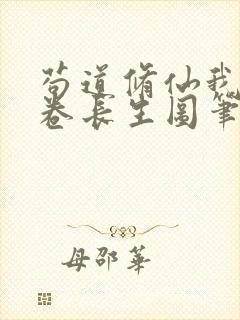 苟道脩仙我
卷長生圖筆
母邵華